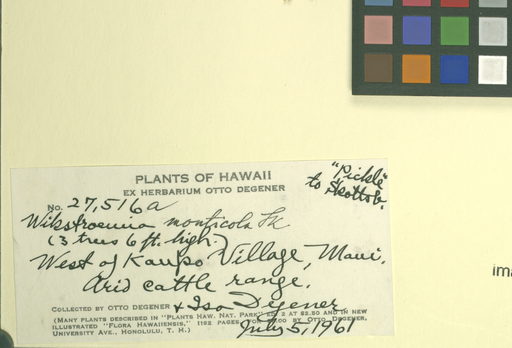 PLANTS OF HAWAII
EX HERBARIUM OTTO DEGENER
"Pickle"
to Skottsb.
No. 27,516a
Wikstroemia monticola Sk
(3 trees 6 ft. high.)
West of Kaupo Village, Maui.
Arid cattle range.
COLLECTED BY OTTO DEGENER & Isa Degener
(MANY PLANTS DESCRIBED IN "PLANTS HAW. NAT. PARK" ED. 2 AT $2.50 AND IN NEW
ILLUSTRATED "FLORA HAWAIIENSIS," 1192 PAGES, BY OTTO DEGENER,
UNIVERSITY AVE., HONOLULU, T. H.)
July 5, 1961
ima